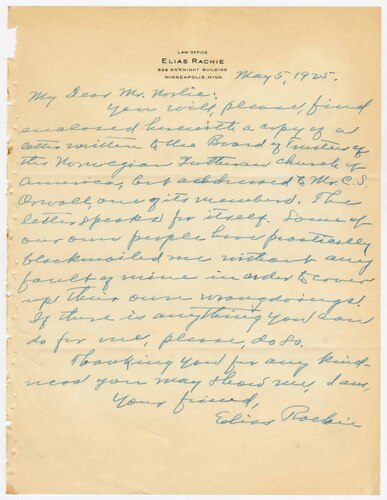 LAW OFFICE
ELIAS RACHIE
926 McKNIGHT BUILDING
MINNEAPOLIS, MINN.
May 5, 1925.
My Dear Mr. Norlie:
You will, please, find
enclosed herewith a copy of a
letter written to the Board of Trustees of
the Norwegian Lutheran Church of
America, but addressed to Mr. C. S.
Orwoll, one of its members. The
letter speaks for itself. Some of
our own people have practically
blackmailed me without any
fault of mine in order to cover
up their own wrongdoings.
If there is anything you can
do for me, please, do so.
Thanking you for any kind-
ness you may show me, I am,
Your friend,
Elias Rachie